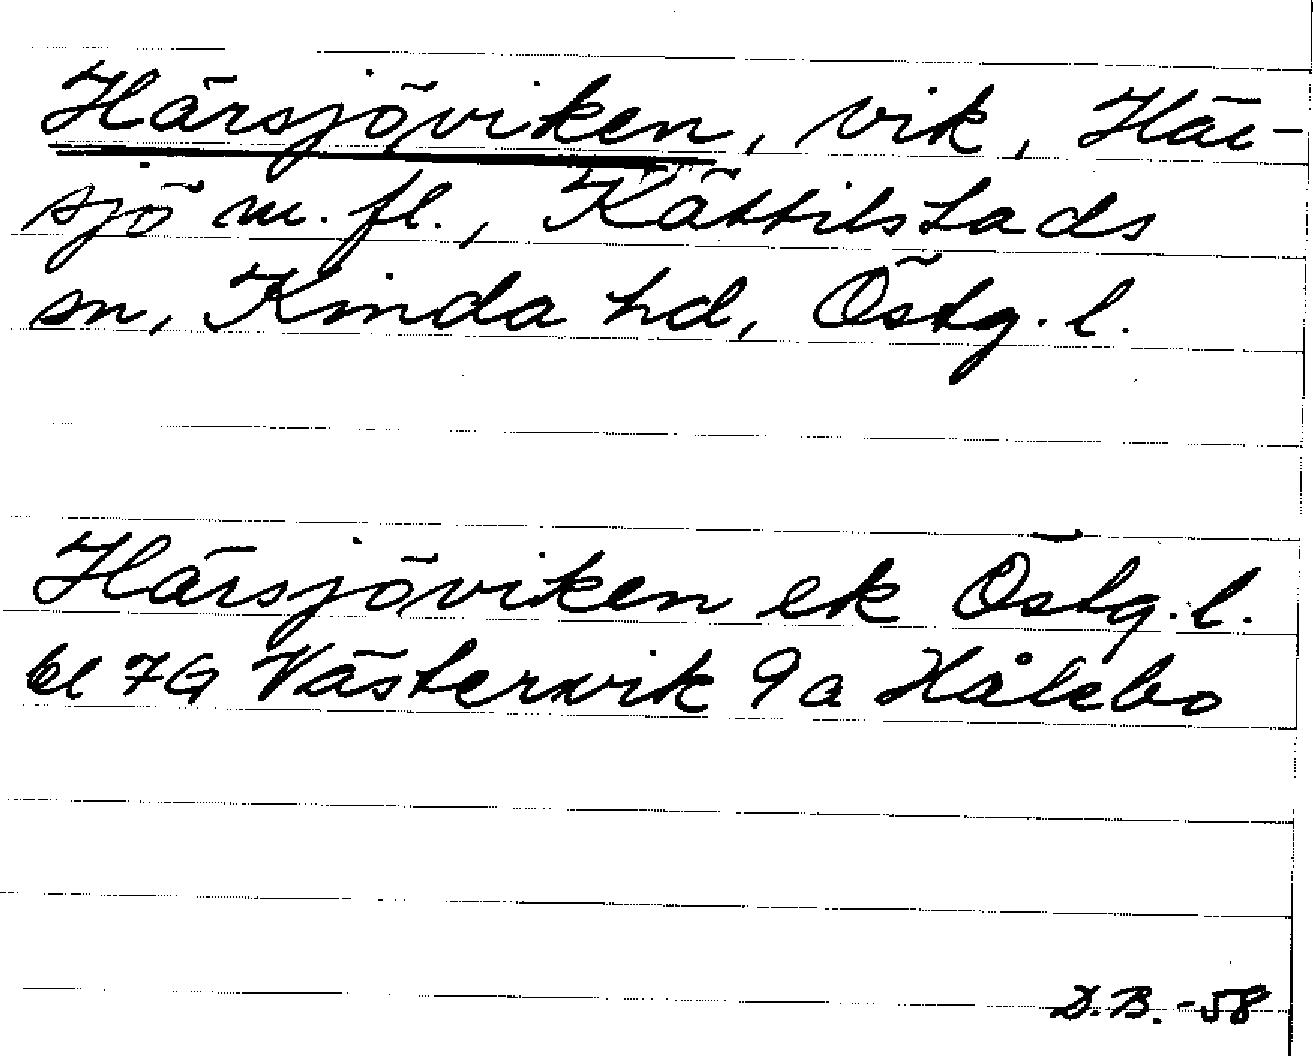 Härsjöviken, vik, Här-
sjö m. fl., Kättilstads
sn, Kinda hd, Östg. l.
Härsjöviken ek Östg. l.
bl 7G Västervik 9a Hålebo
D.B. -58